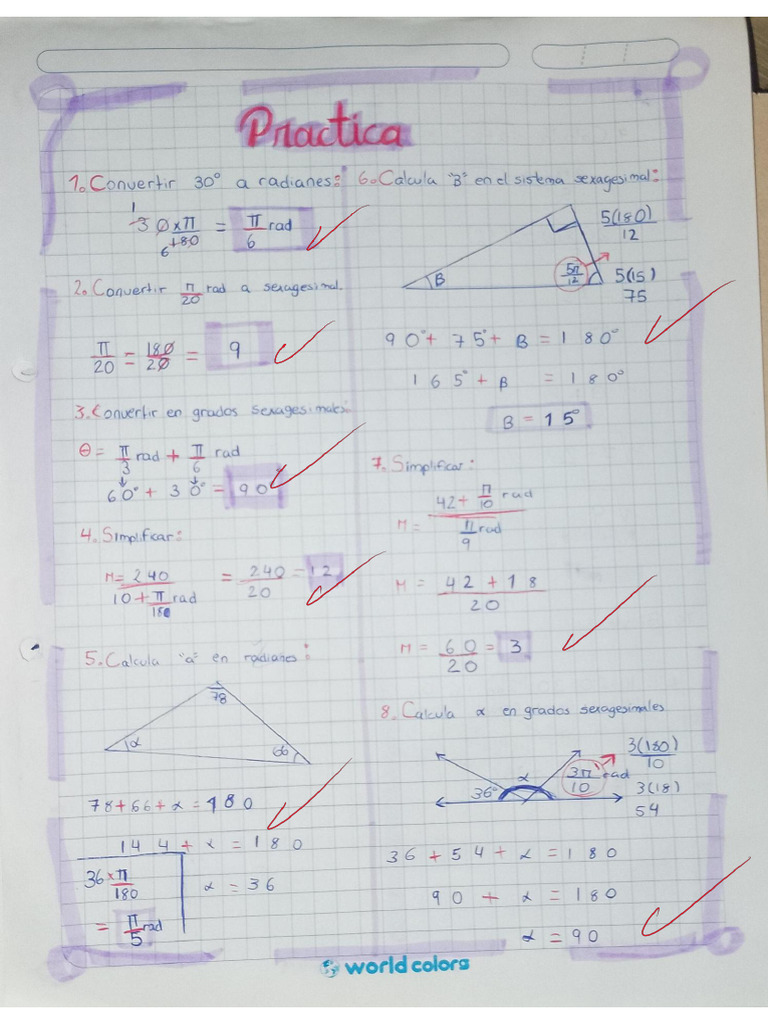 Practica
1. Convertir 30° a radianes:
30 x π = π rad
180 6
6
1
2. Convertir π rad a sexagesimal.
20
π = 180 = 9
20 20
3. Convertir en grados sexagesimales:
θ = π rad + π rad
3 6
60° + 30° = 90
4. Simplificar:
M = 240 = 240 = 12
10 + π rad 20
180
5. Calcula "a" en radianes:
78
α 66
78 + 66 + α = 180
144 + α = 180
36 x π
180
α = 36
= π rad
5
6. Calcula "B" en el sistema sexagesimal:
5(180)
12
B 5π
12
5(15)
75
90° + 75° + B = 180°
165° + B = 180°
B = 15°
7. Simplificar:
42 + π rad
10
M =
π rad
9
M = 42 + 18
20
M = 60 = 3
20
8. Calcula α en grados sexagesimales
3(180)
10
α
36° 3π rad
10
3(18)
54
36 + 54 + α = 180
90 + α = 180
α = 90
world colors